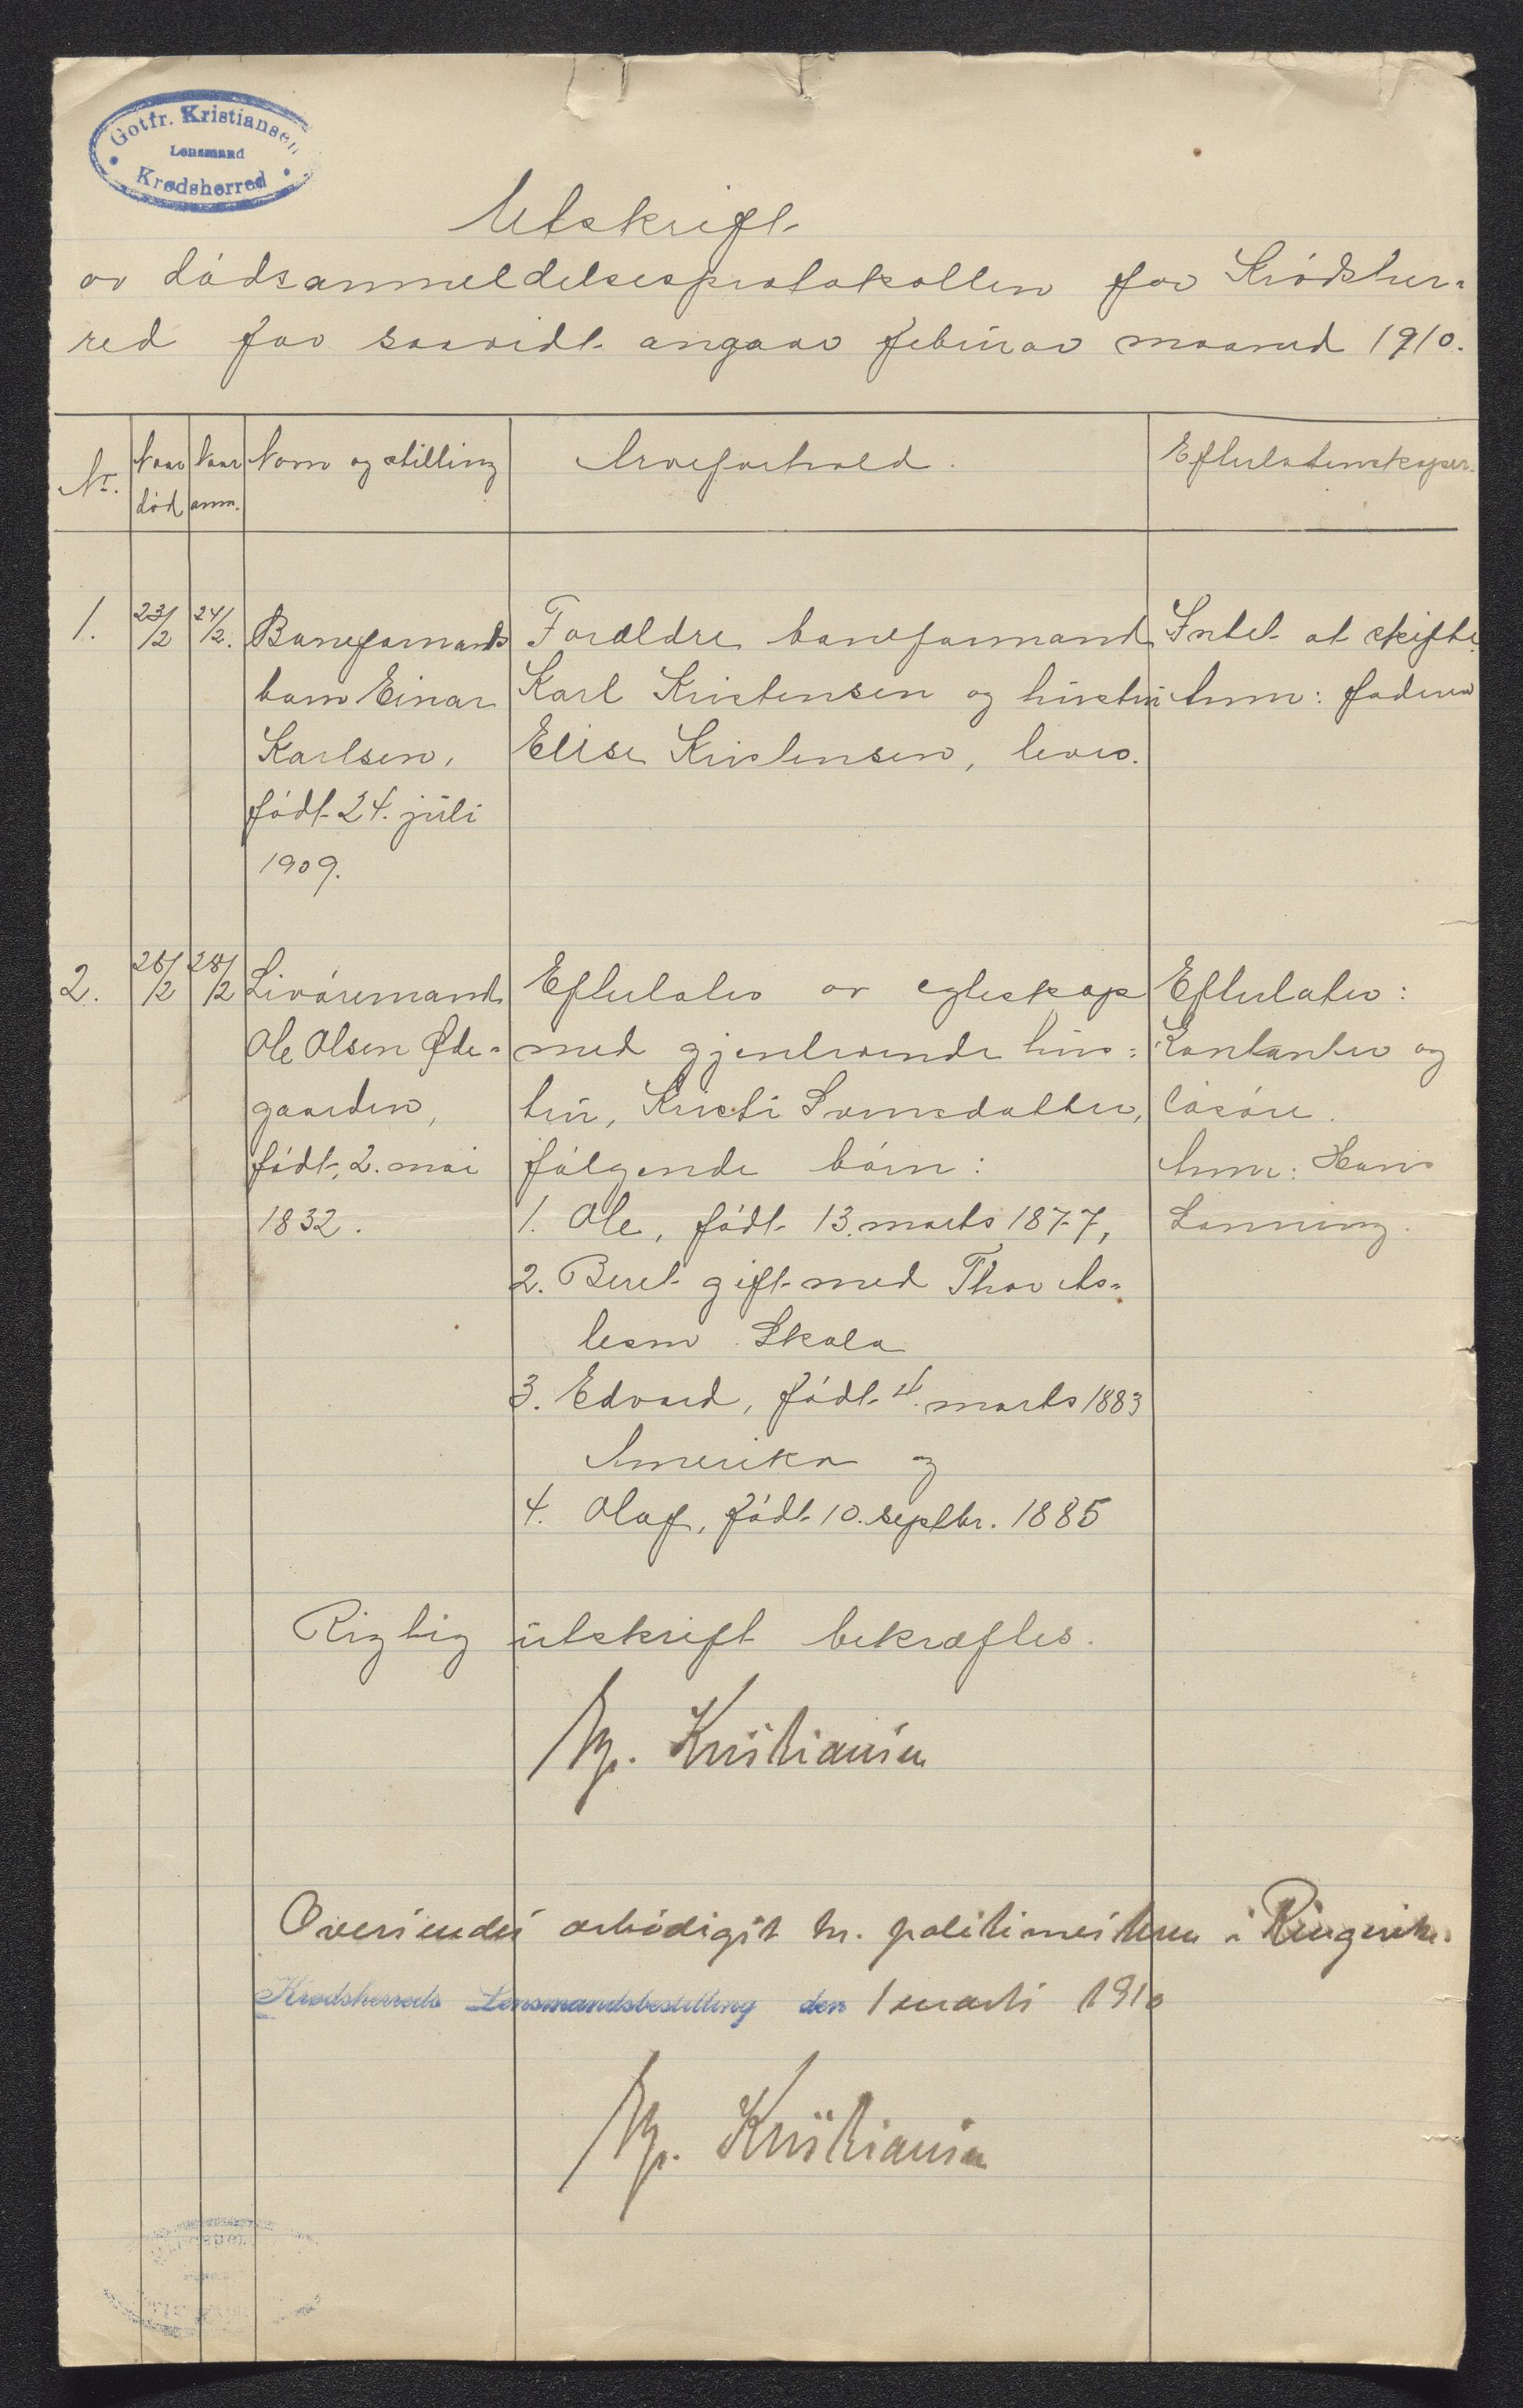 Gotfr. Kristiansen
Lensmand
Krødsherred
Utskrift
av dødsanmeldelsesprotokollen for Krødsher-
red for saavidt angaar februar maaned 1910.
Nr. Naar død Naar anm. Navn og stilling Arveforhold. Efterlatenskaper.
1. 23/2 24/2. Baneformands Forældre baneformand Intet at skifte.
barn Einar Karl Kristensen og hustru Anm: faderen
Karlsen, Elise Kristensen, lever.
født 24. juli
1909.
2. 26/2 28/2 Livøremand Efterlater av egteskap Efterlater:
Ole Olsen Øde- med gjenlevende hus- Kontanter og
gaarden, tru, Kristi Svensdatter, løsøre.
født 2. mai følgende børn: Anm: Hans
1832. 1. Ole, født 13. marts 1877, Lønning.
2. Beret gift med Thor As-
lesen Skala
3. Edvard, født 4. marts 1883
Amerika og
4. Olaf, født 10. septbr. 1885
Rigtig utskrift bekræftes.
Kristiansen
Oversendes ærbødigst hr. politimesteren i Ringerike.
Krødsherreds Lensmandsbestilling den 1 marts 1910
Kristiansen